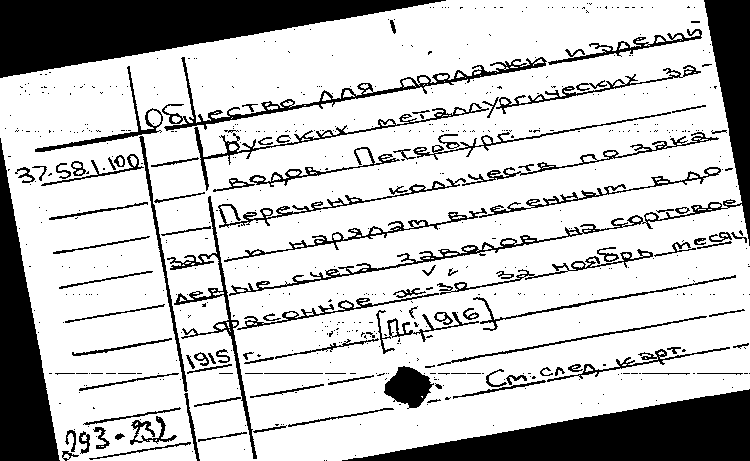 Общество для продажи изделий
русских металлургических за-
37.58.1.100
водов. Петербург.
Перечень количеств по зака-
зам и нарядам, внесенным в до-
левые счета заводов на сортовое
и фасонное ж-зо за ноябрь месяц
1915 г. [Пг., 1916]
См. след. карт.
293-232